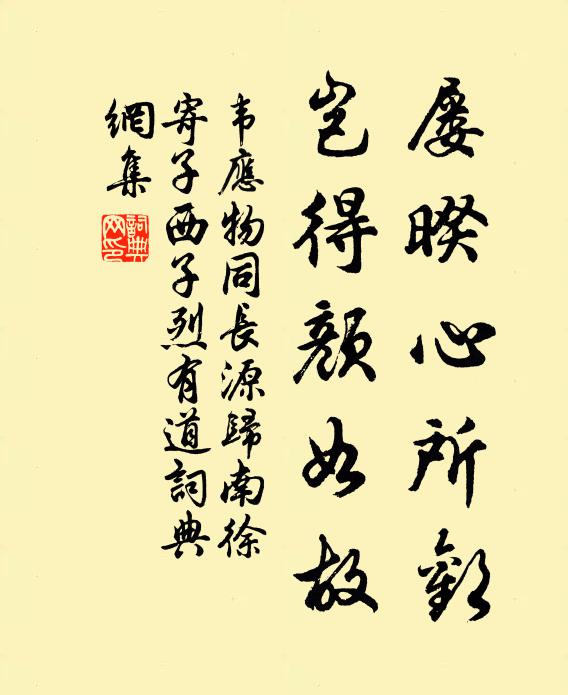 屡睽心所歡
豈得顔如故
韦應物同長源歸南徐
寄子西子烈有道詞典
網集
詞典
网印